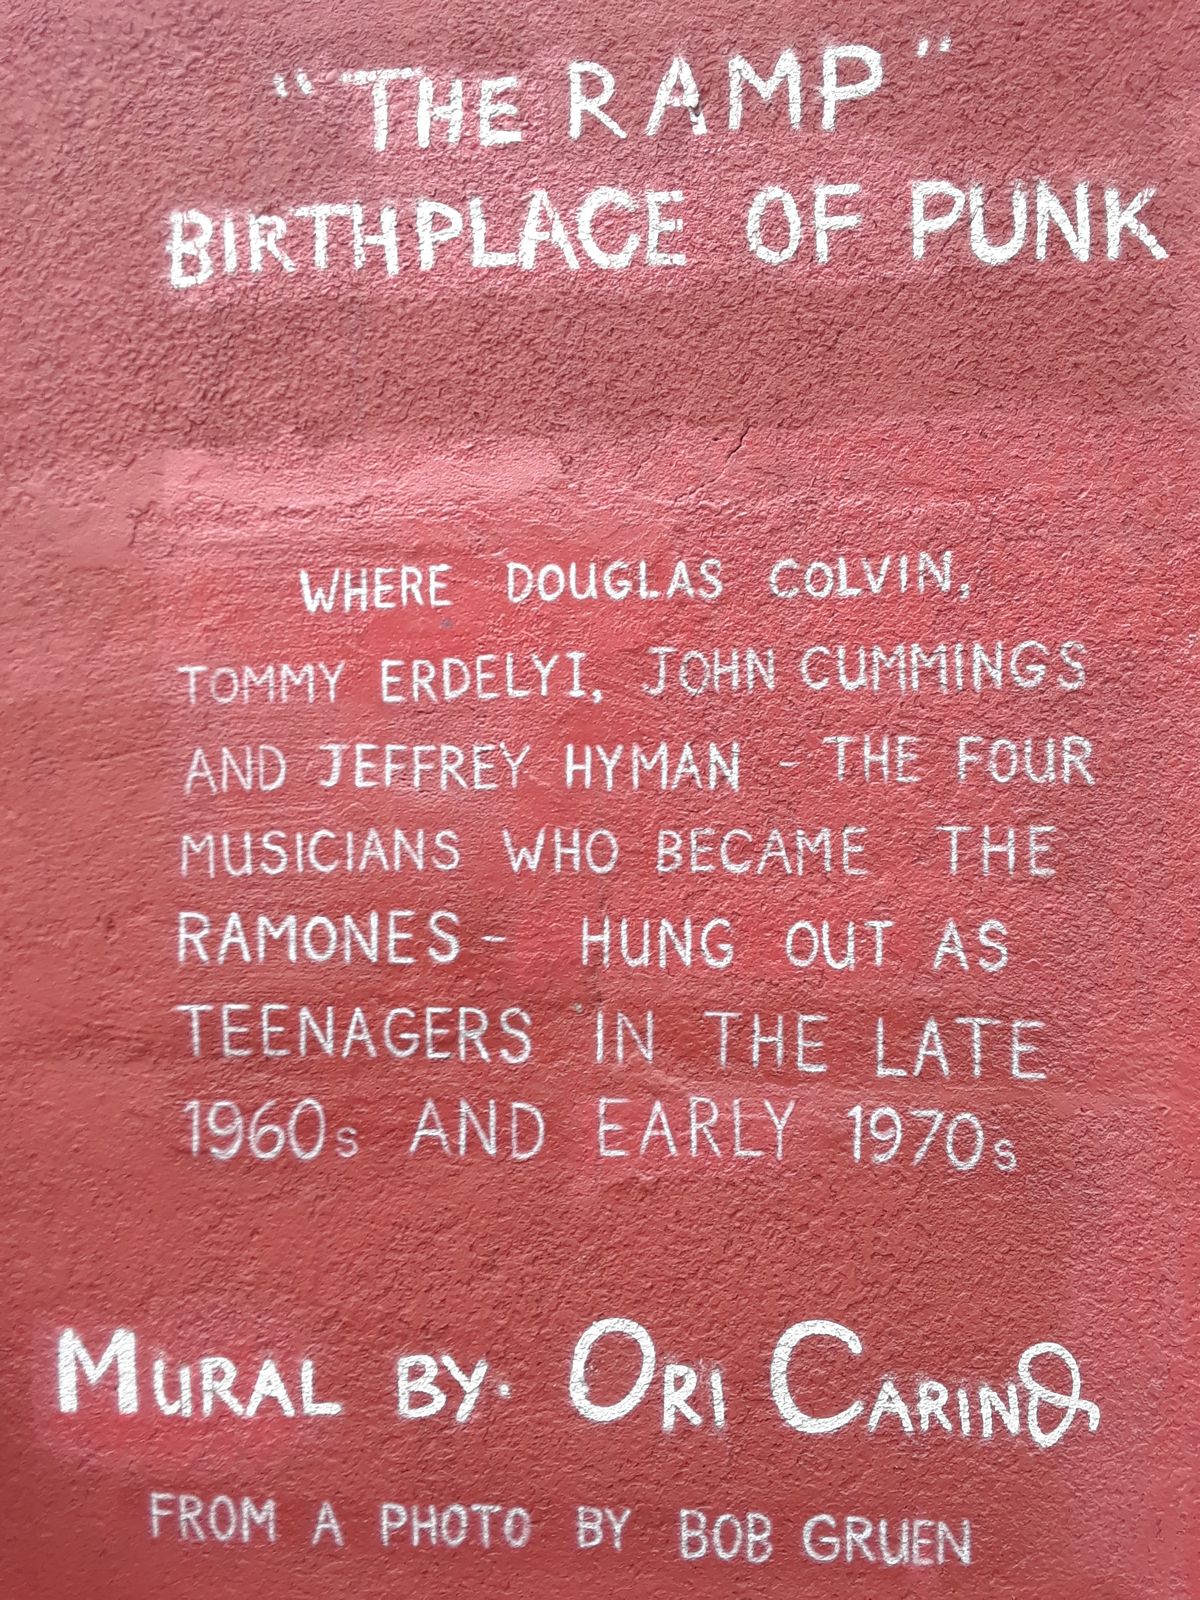 "THE RAMP"
BIRTHPLACE OF PUNK
WHERE DOUGLAS COLVIN,
TOMMY ERDELYI, JOHN CUMMINGS
AND JEFFREY HYMAN - THE FOUR
MUSICIANS WHO BECAME THE
RAMONES - HUNG OUT AS
TEENAGERS IN THE LATE
1960s AND EARLY 1970s
MURAL BY. ORI CARINO
FROM A PHOTO BY BOB GRUEN